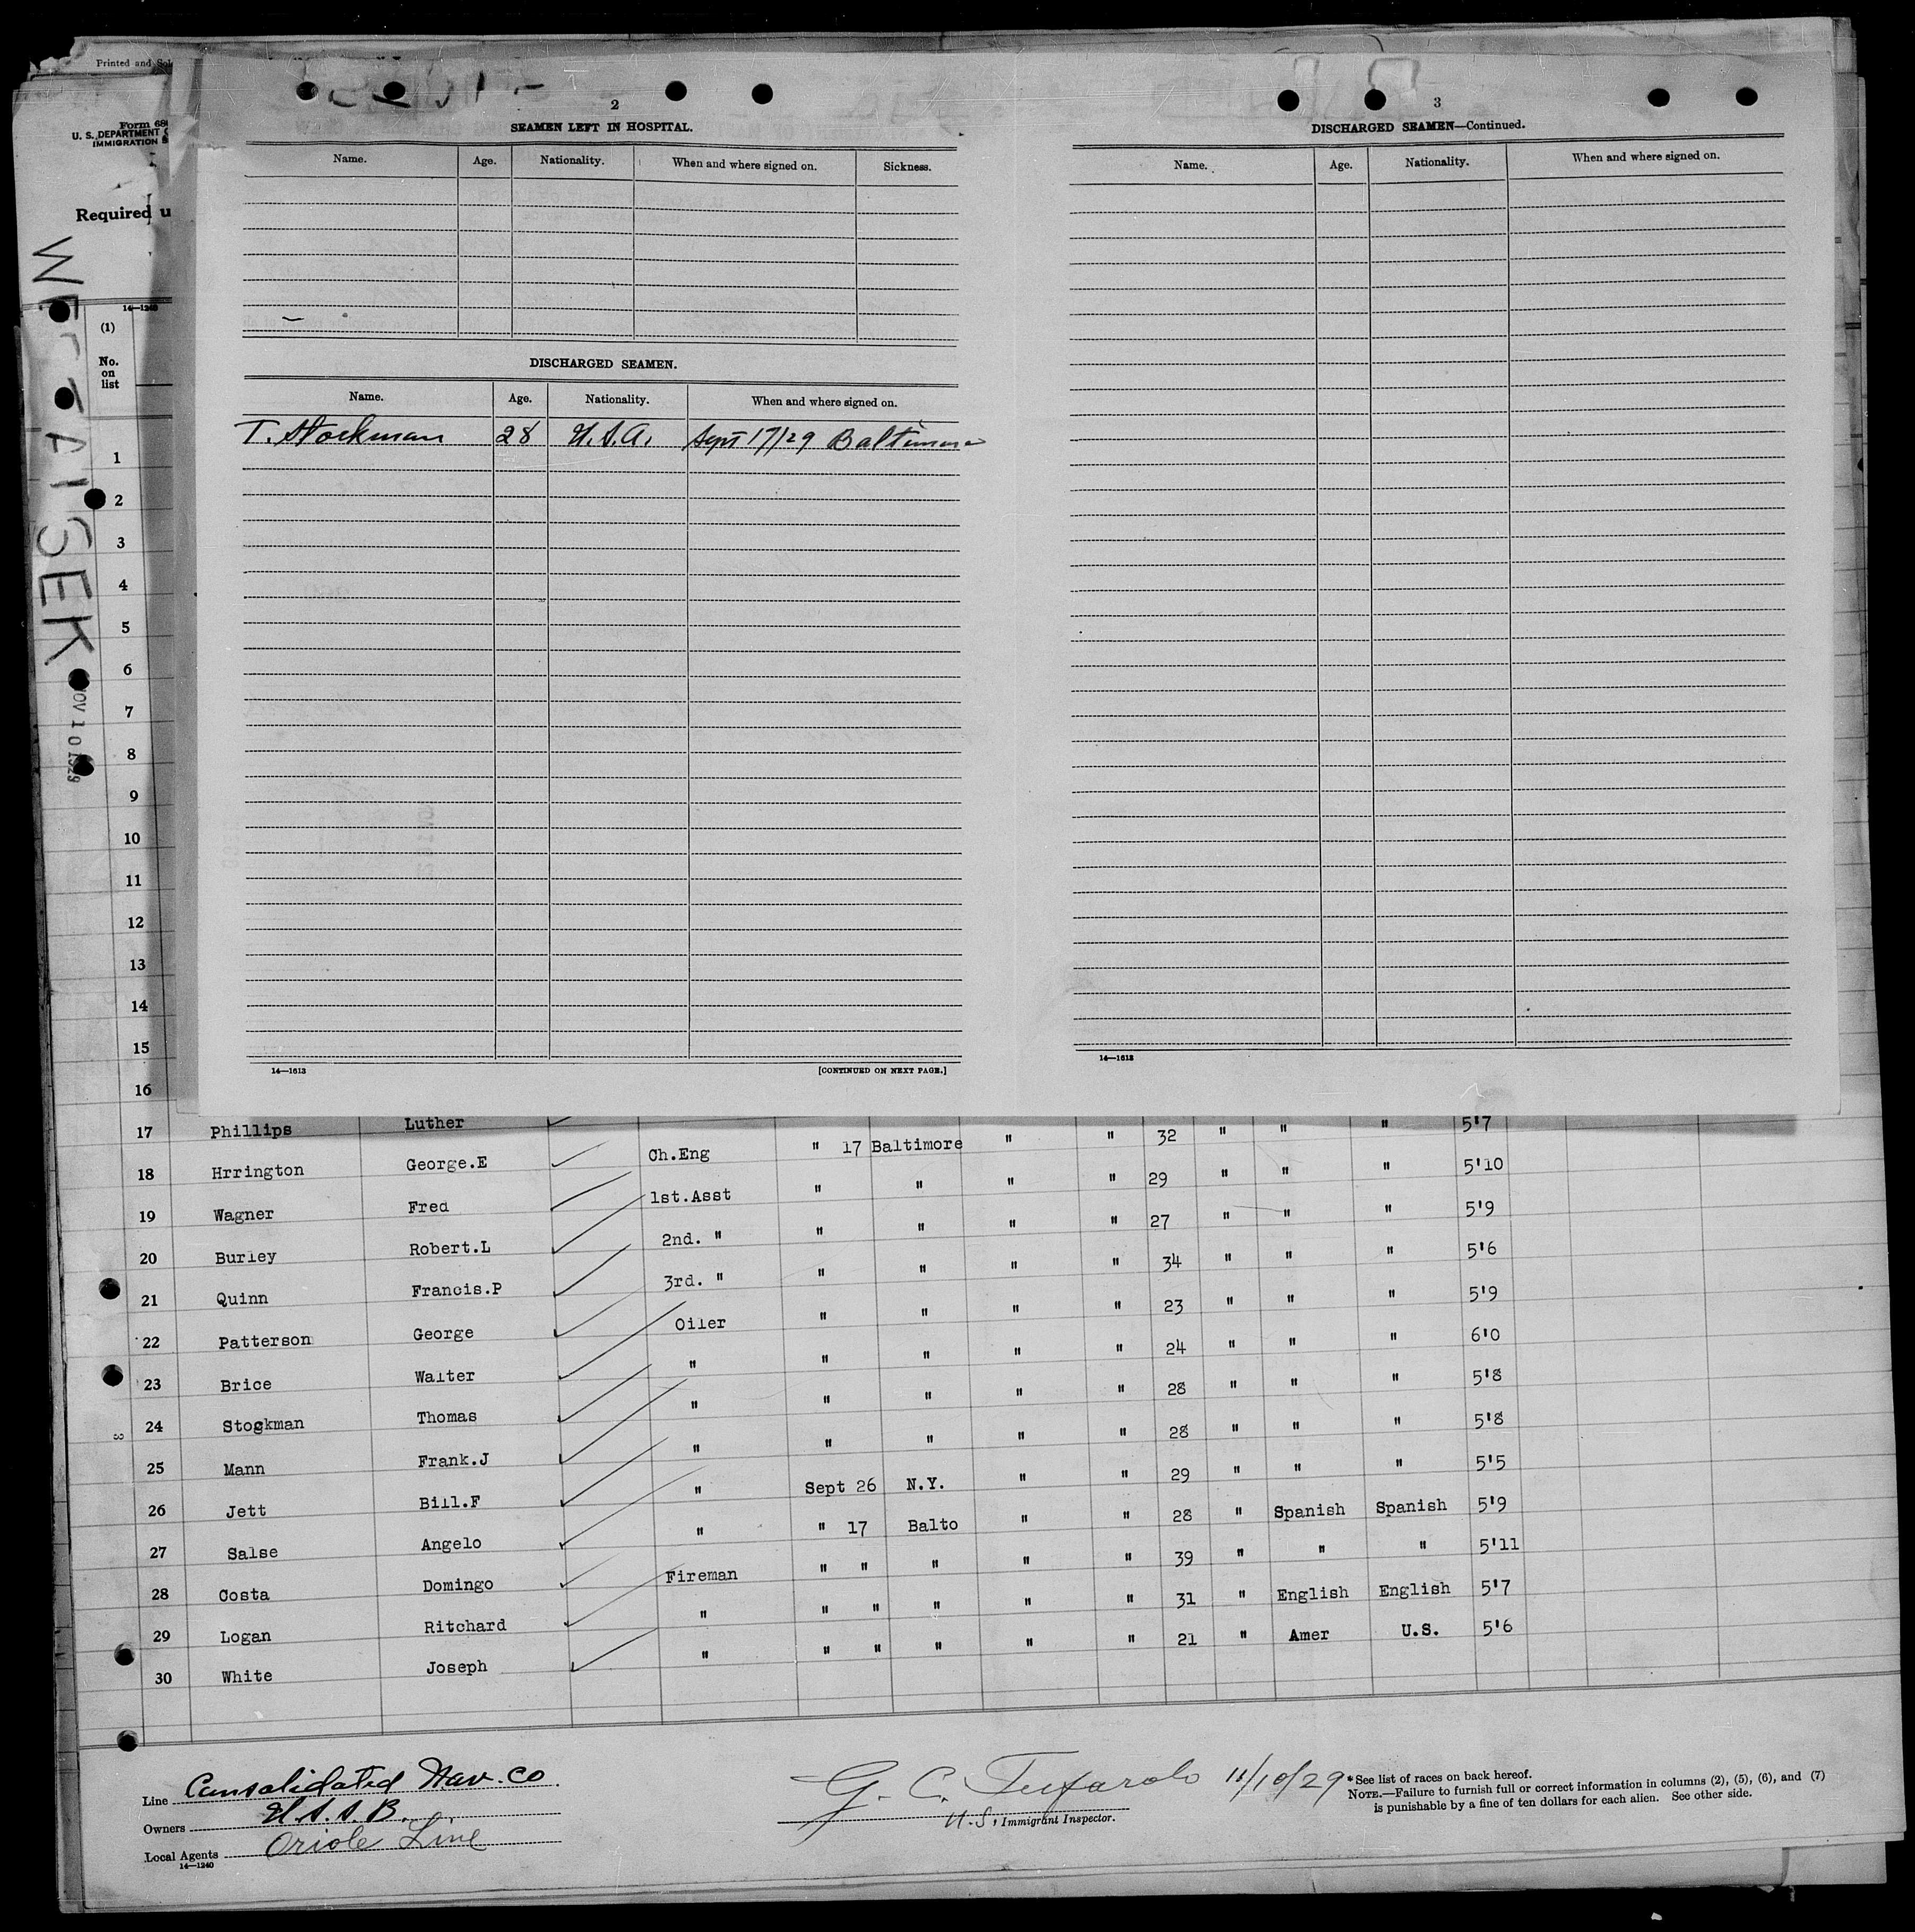 Printed and
Form 68
U. S. DEPARTMENT
IMMIGRATION
Required u
14—1240
(1)
No.
on
list
NOV 10 1929
2
SEAMEN LEFT IN HOSPITAL.
Name. Age. Nationality. When and where signed on. Sickness.
DISCHARGED SEAMEN.
Name. Age. Nationality. When and where signed on.
T. Stockman 28 U.S.A. Sept 17/29 Baltimore
14—1613 [CONTINUED ON NEXT PAGE.]
3
DISCHARGED SEAMEN—Continued.
Name. Age. Nationality. When and where signed on.
14—1613
1
2
3
4
5
6
7
8
9
10
11
12
13
14
15
16
17 Phillips Luther
18 Hrrington George.E Ch.Eng " 17 Baltimore " " 32 " " " 5'7
19 Wagner Fred 1st.Asst " " " " 29 " " " 5'10
20 Burley Robert.L 2nd. " " " " " 27 " " " 5'9
21 Quinn Francis.P 3rd. " " " " " 34 " " " 5'6
22 Patterson George Oiler " " " " 23 " " " 5'9
23 Brice Walter " " " " " 24 " " " 6'0
24 Stockman Thomas " " " " " 28 " " " 5'8
25 Mann Frank.J " " " " " 28 " " " 5'8
26 Jett Bill.F " Sept 26 N.Y. " " 29 " " " 5'5
27 Salse Angelo " " 17 Balto " " 28 " Spanish Spanish 5'9
28 Costa Domingo Fireman " " " " " 39 " " " 5'11
29 Logan Ritchard " " " " " " 31 " English English 5'7
30 White Joseph " " " " " " 21 " Amer U.S. 5'6
Line Consolidated Nav. Co
Owners U.S.S.B.
Local Agents Oriole Line
14—1240
G. C. 11/10/29
U.S. Immigrant Inspector.
*See list of races on back hereof.
NOTE.—Failure to furnish full or correct information in columns (2), (5), (6), and (7)
is punishable by a fine of ten dollars for each alien. See other side.